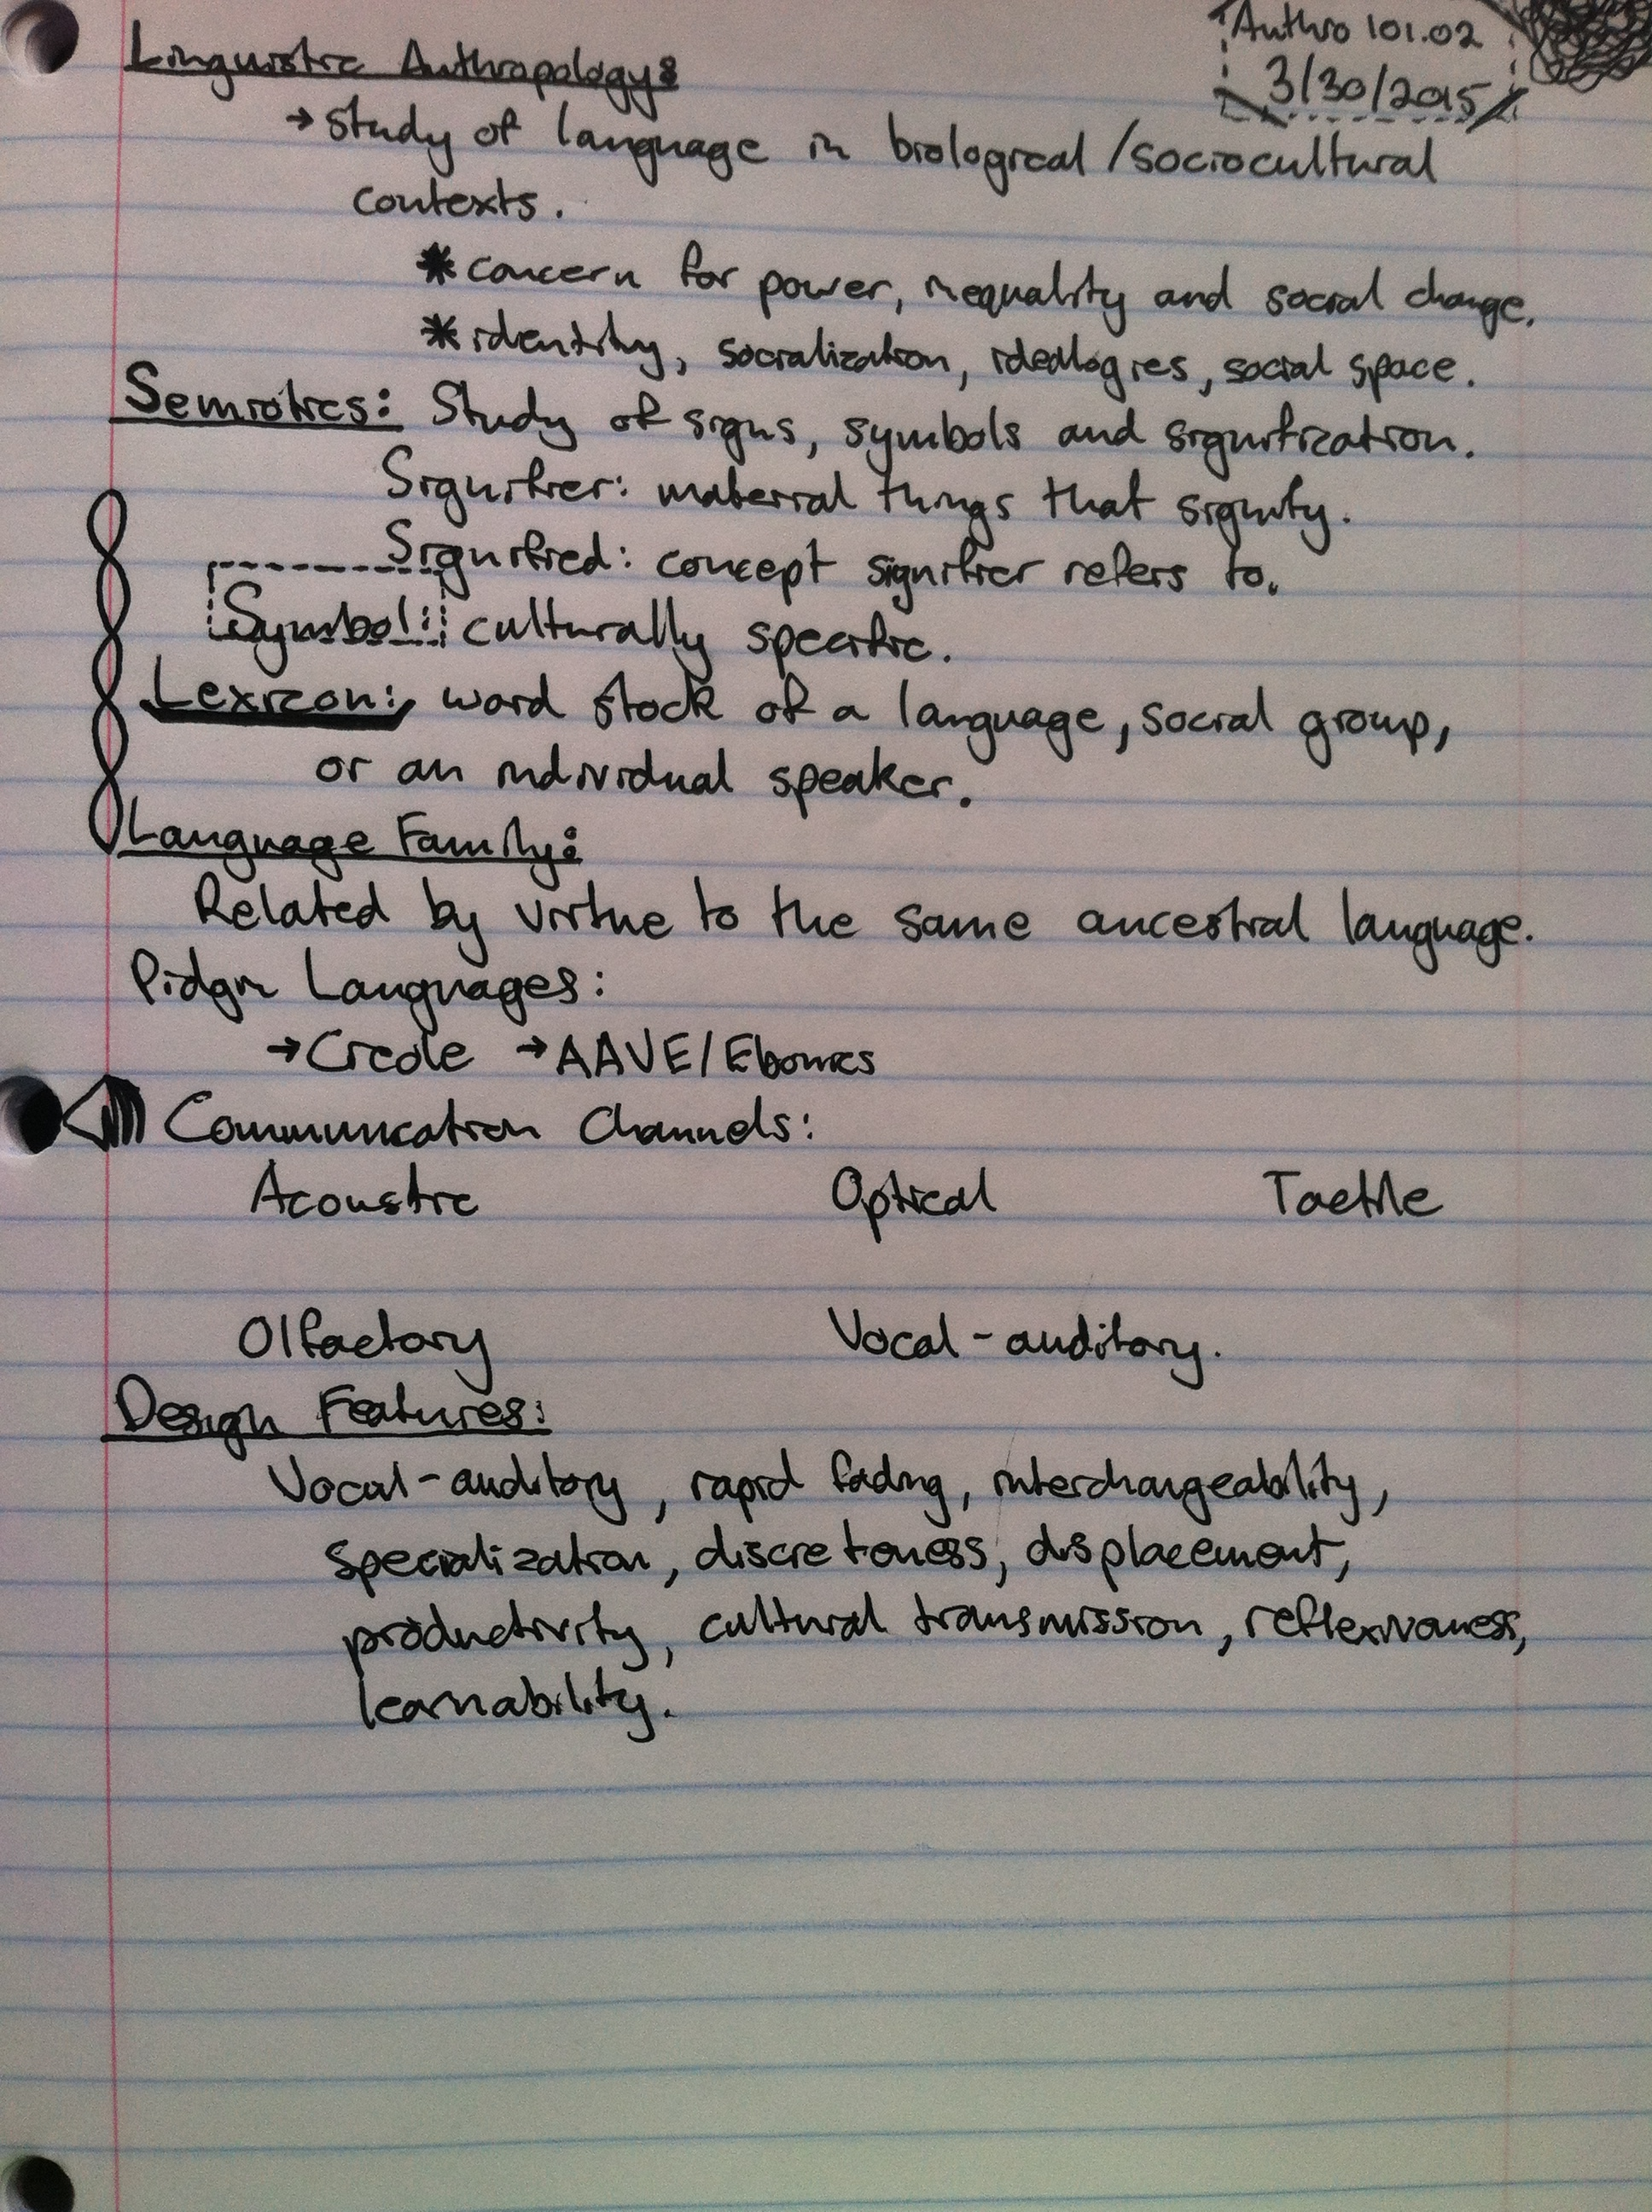 Anthro 101.02
3/30/2015
Linguistic Anthropology:
→ study of language in biological/sociocultural
contexts.
* concern for power, inequality and social change.
* identity, socialization, idealogies, social space.
Semiotics: Study of signs, symbols and signification.
Signifier: material things that signify.
Signified: concept signifier refers to.
Symbol: culturally specific.
Lexicon: word stock of a language, social group,
or an individual speaker.
Language Family:
Related by virtue to the same ancestral language.
Pidgin Languages:
→ Creole → AAVE/Ebonics
Communication Channels:
Acoustic Optical Tactile
Olfactory Vocal-auditory.
Design Features:
Vocal-auditory, rapid fading, interchangeability,
specialization, discreteness, displacement,
productivity, cultural transmission, reflexiveness,
learnability.